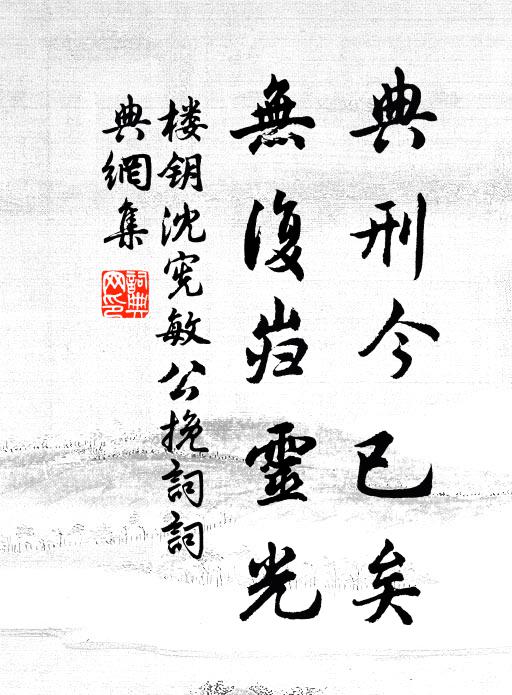 典刑今已矣
無復岿靈光
楼钥沈宪敏公挽詞詞
典網集
詞典網印